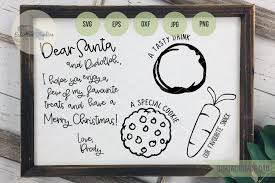 SVG EPS DXF JPG PNG
Dear Santa
and Rudolph,
I hope you enjoy a
few of my favourite
treats and have a
Merry Christmas!
Love,
Brody
A TASTY DRINK
A SPECIAL COOKIE
OUR FAVOURITE SNACK